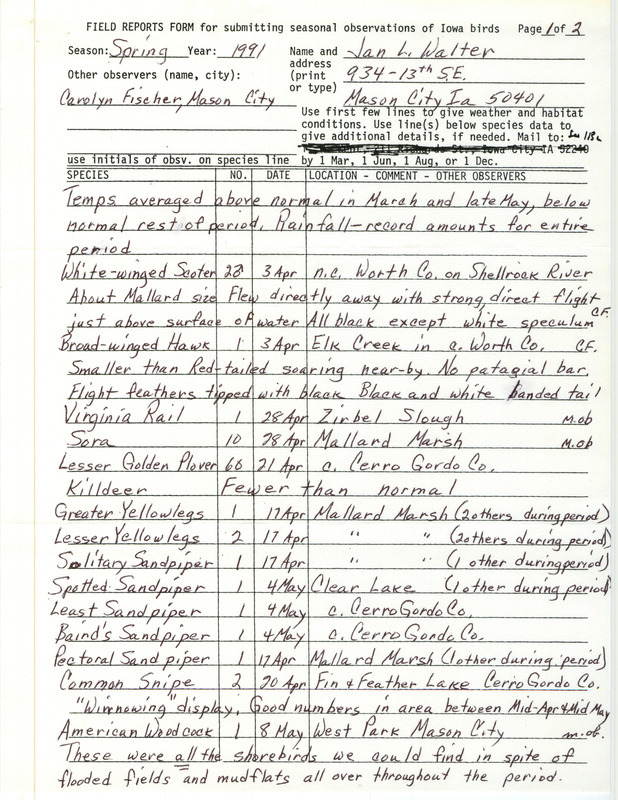 FIELD REPORTS FORM for submitting seasonal observations of Iowa birds Page 1 of 2
Season: Spring Year: 1991 Name and Jan L. Walter
address 934-13th S.E.
Other observers (name, city): (print
or type)
Carolyn Fischer, Mason City Mason City Ia 50401
Use first few lines to give weather and habitat
conditions. Use line(s) below species data to
give additional details, if needed. Mail to:
Iowa City IA 52240
use initials of obsv. on species line by 1 Mar, 1 Jun, 1 Aug, or 1 Dec.
SPECIES NO. DATE LOCATION - COMMENT - OTHER OBSERVERS
Temps averaged above normal in March and late May, below
normal rest of period. Rainfall-record amounts for entire
period
White-winged Scoter 3 Apr n.c. Worth Co. on Shellrock River
About Mallard size Flew directly away with strong direct flight
just above surface of water All black except white speculum C.F.
Broad-winged Hawk 1 3 Apr Elk Creek in c. Worth Co. CF.
Smaller than Red-tailed soaring near-by. No patagial bar.
Flight feathers tipped with black Black and white banded tail
Virginia Rail 1 28 Apr Zirbel Slough m.ob
Sora 10 28 Apr Mallard Marsh m.ob
Lesser Golden Plover 60 21 Apr c. Cerro Gordo Co.
Killdeer Fewer than normal
Greater Yellowlegs 1 17 Apr Mallard Marsh (2 others during period)
Lesser Yellowlegs 2 17 Apr " " (2 others during period)
Solitary Sandpiper 1 17 Apr " " (1 other during period)
Spotted Sandpiper 1 4 May Clear Lake (1 other during period)
Least Sandpiper 1 4 May c. Cerro Gordo Co.
Baird's Sandpiper 1 4 May c. Cerro Gordo Co.
Pectoral Sandpiper 1 17 Apr Mallard Marsh (1 other during period)
Common Snipe 2 20 Apr Fin & Feather Lake Cerro Gordo Co.
"Winnowing" display, Good numbers in area between Mid-Apr & Mid May
American Woodcock 1 8 May West Park Mason City m.ob.
These were all the shorebirds we could find in spite of
flooded fields and mudflats all over throughout the period.